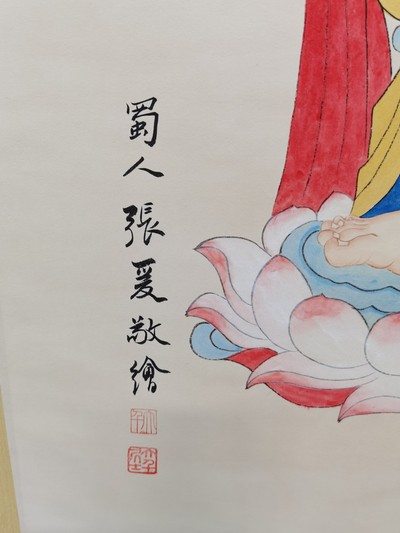 蜀人張爰敬繪